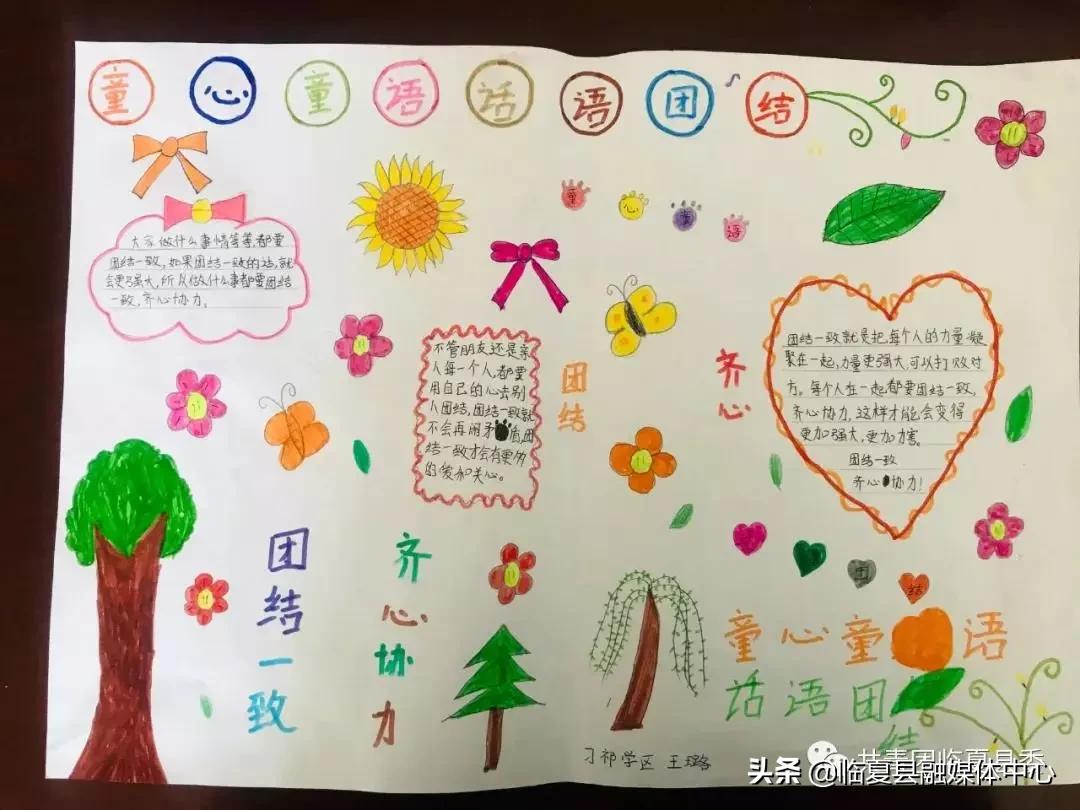 童心童语话语团结
童心童语
大家做什么事情等等,都要
团结一致,如果团结一致的话,就
会更强大,所以做什么事都要团结
一致,齐心协力。
不管朋友还是亲
人每一个人,都要
用自己的心去别
人团结,团结一致就
不会再闹矛盾,团
结一致才会有更多
的爱和关心。
团结
齐心
团结一致就是把每个人的力量凝
聚在一起,力量更强大,可以打败对
方。每个人在一起都要团结一致,
齐心协力,这样才能会变得
更加强大,更加力害。
团结一致
齐心协力!
团结
团结一致
齐心协力
童心童语
话语团结
刁祁学区 王璐
共青团临夏县委
头条 @临夏县融媒体中心